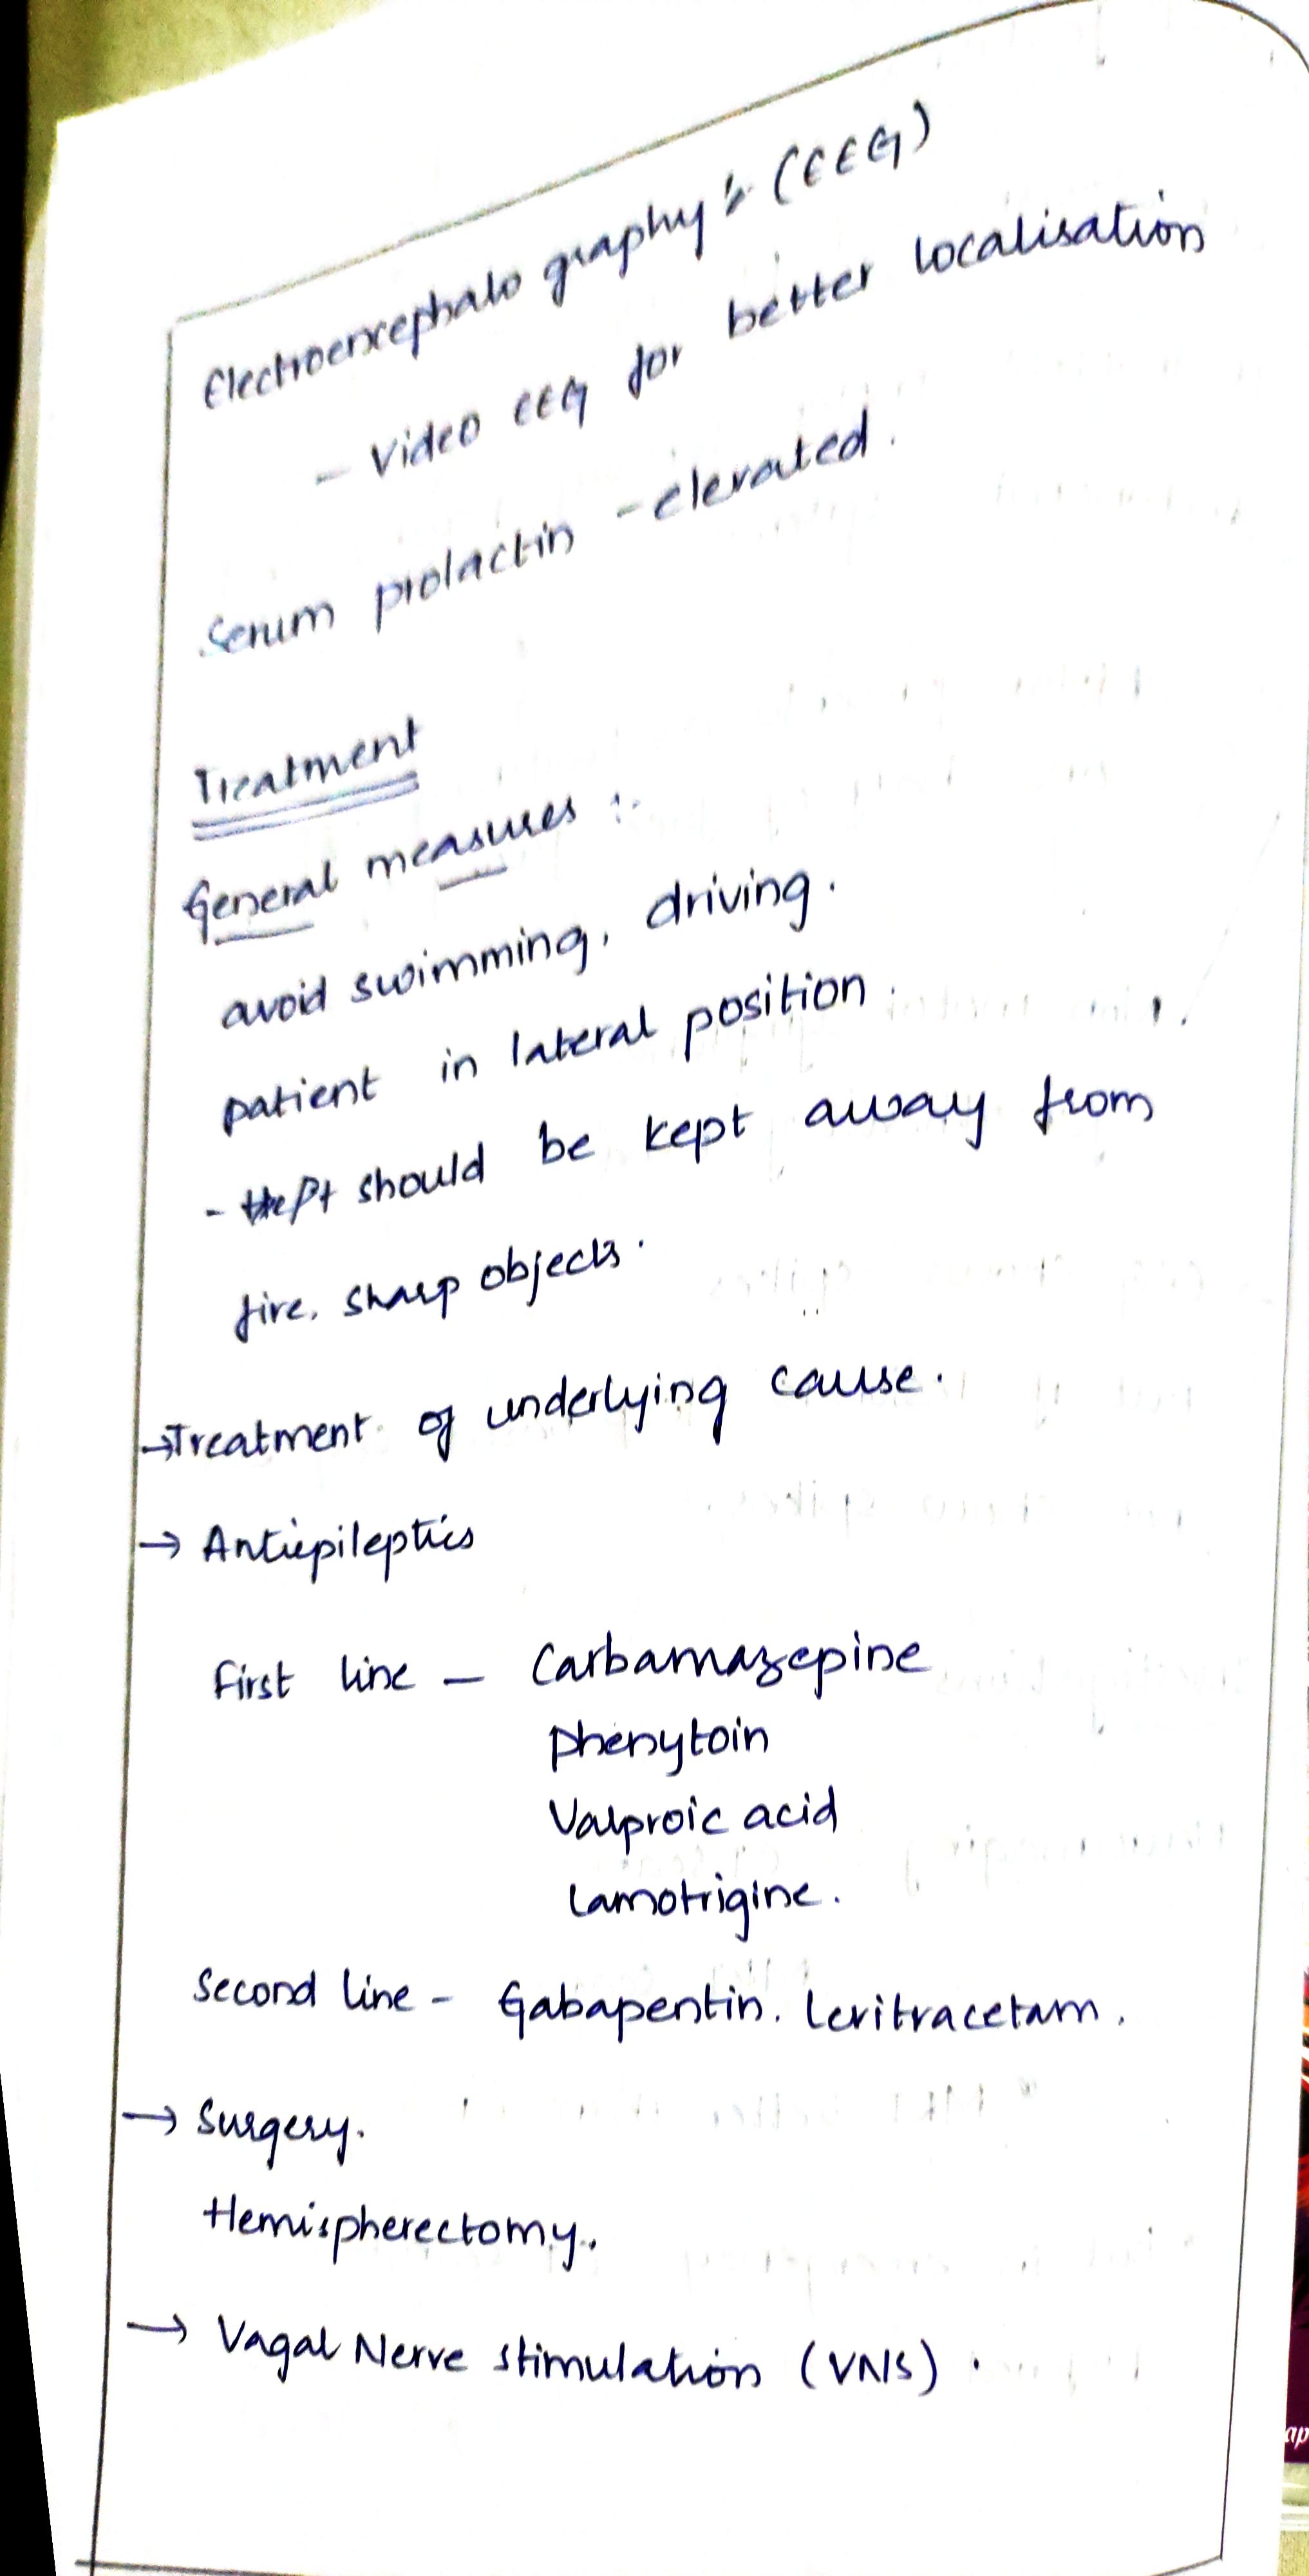 Electroencephalo graphy :- (EEG)
- Video EEG for better localisation
Serum prolactin - elevated.
Treatment
General measures :-
avoid swimming, driving.
patient in lateral position.
- the Pt should be kept away from
fire, sharp objects.
→ Treatment of underlying cause.
→ Antiepileptics
First line - Carbamazepine
Phenytoin
Valproic acid
Lamotrigine.
Second line - Gabapentin, Levitracetam.
→ Surgery.
Hemispherectomy.
→ Vagal Nerve stimulation (VNS).
ap